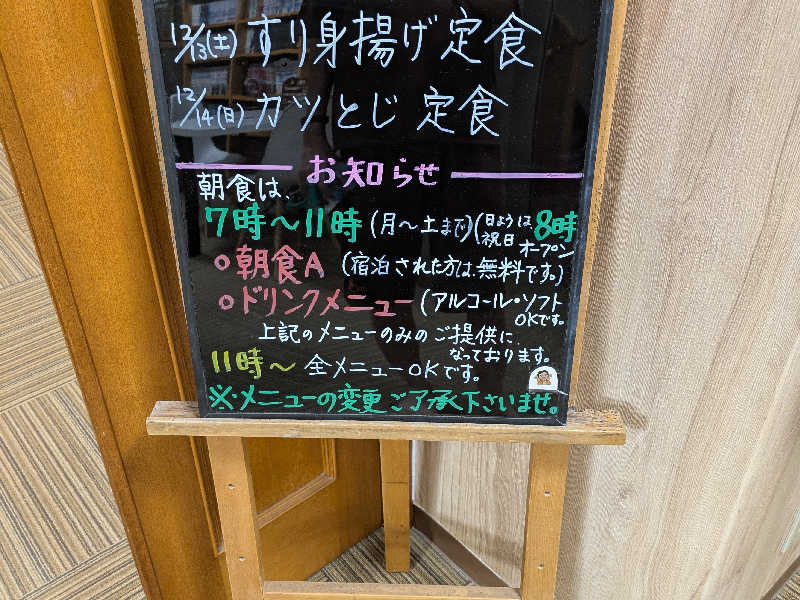 12/13(土) すり身揚げ定食
12/14(日) カツとじ定食
お知らせ
朝食は、
7時～11時 (月～土まで) (日ようは、祝日 8時オープン
○朝食A (宿泊された方は無料です。)
○ドリンクメニュー (アルコール・ソフト
OKです。
上記のメニューのみのご提供に、
なっております。
11時～ 全メニューOKです。
※メニューの変更ご了承下さいませ。